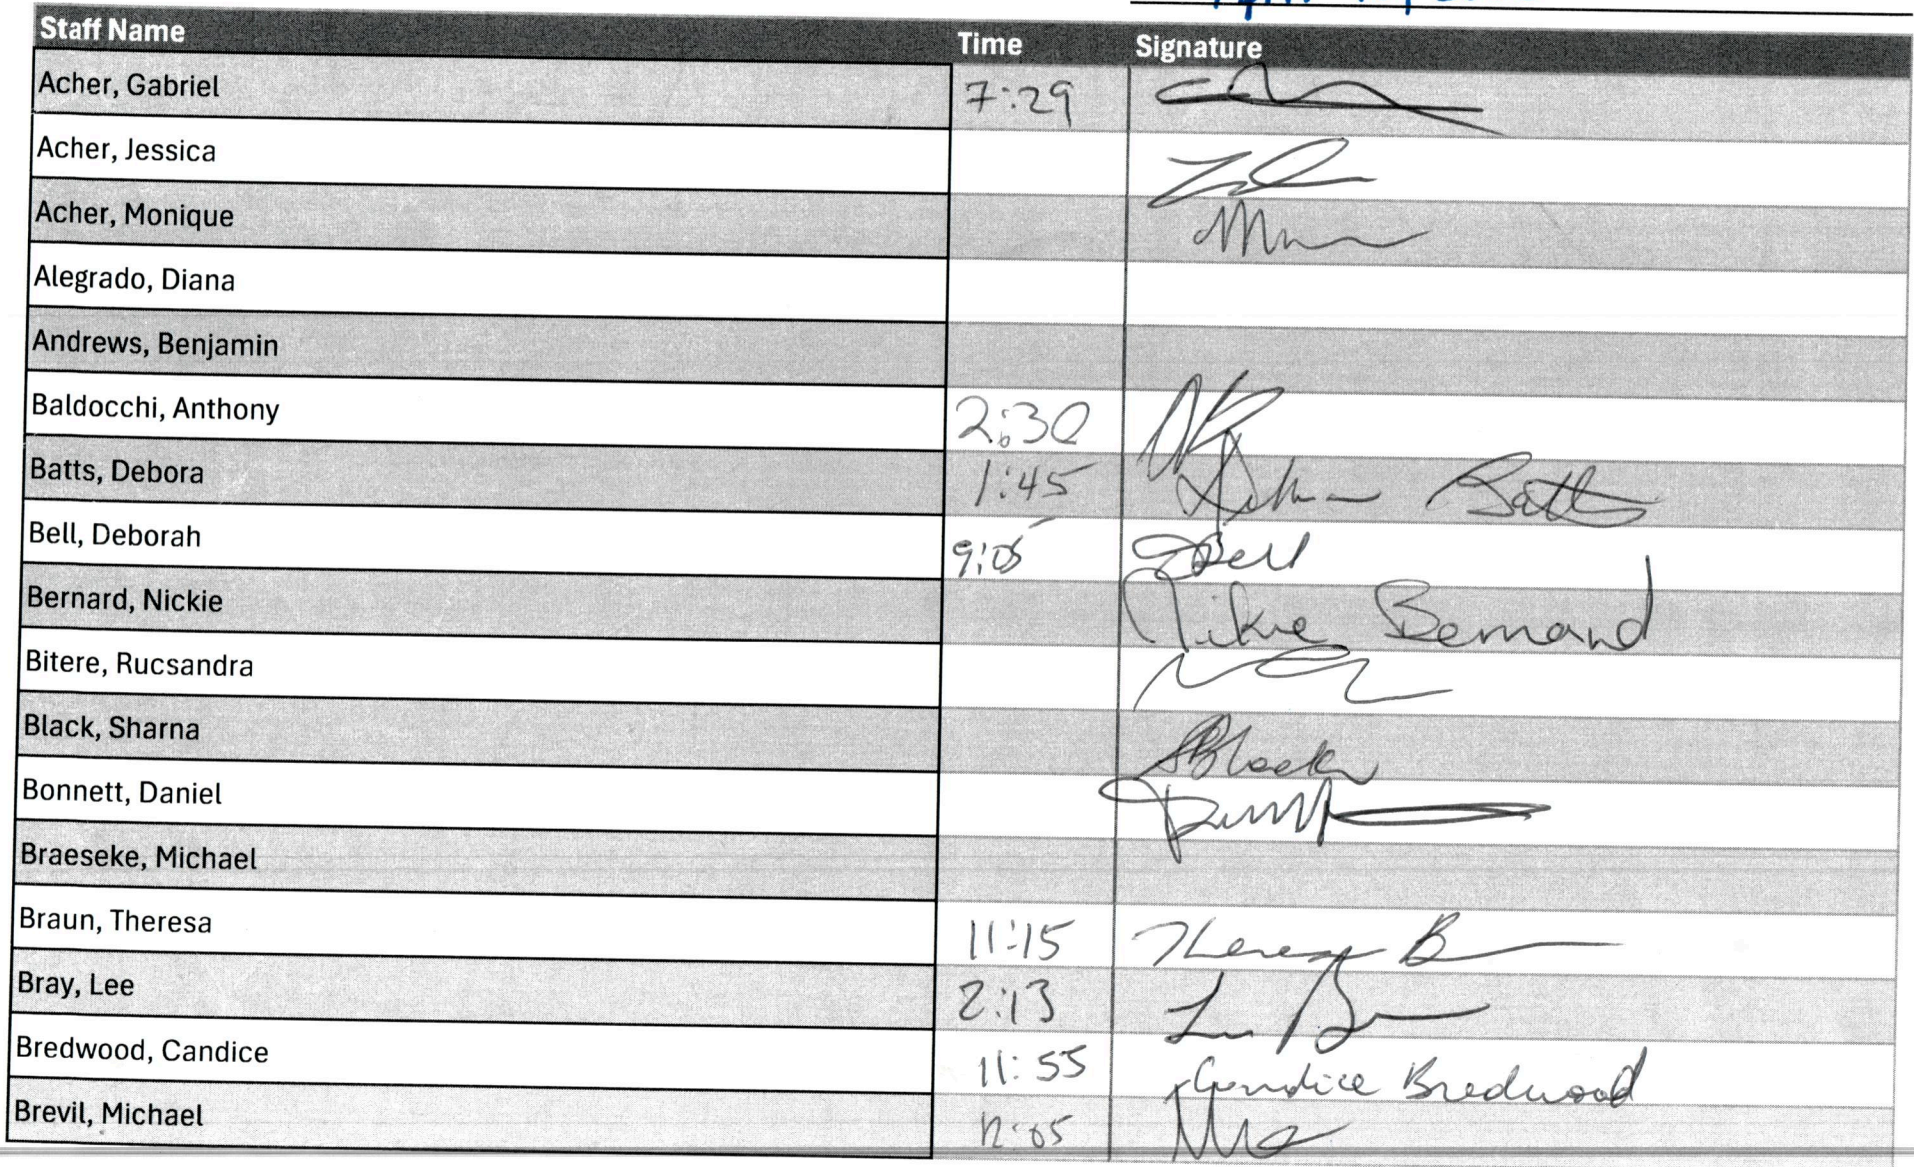 Staff Name Time Signature
Acher, Gabriel 7:29
Acher, Jessica
Acher, Monique
Alegrado, Diana
Andrews, Benjamin
Baldocchi, Anthony 2:30
Batts, Debora 1:45 Batts
Bell, Deborah 9:05 DBell
Bernard, Nickie Nikie Bernard
Bitere, Rucsandra
Black, Sharna SBlack
Bonnett, Daniel
Braeseke, Michael
Braun, Theresa 11:15 Theresa B
Bray, Lee 2:13
Bredwood, Candice 11:55 Candice Bredwood
Brevil, Michael 12:05